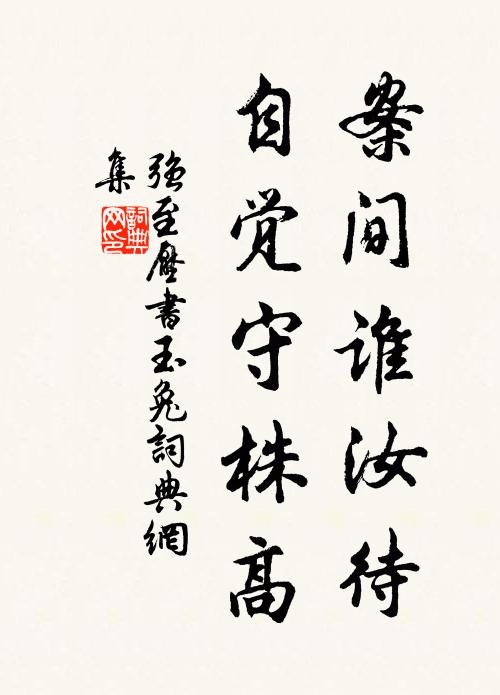 案间谁汝待
自觉守株高
强至壓書玉兔詞典網
集
詞典网印